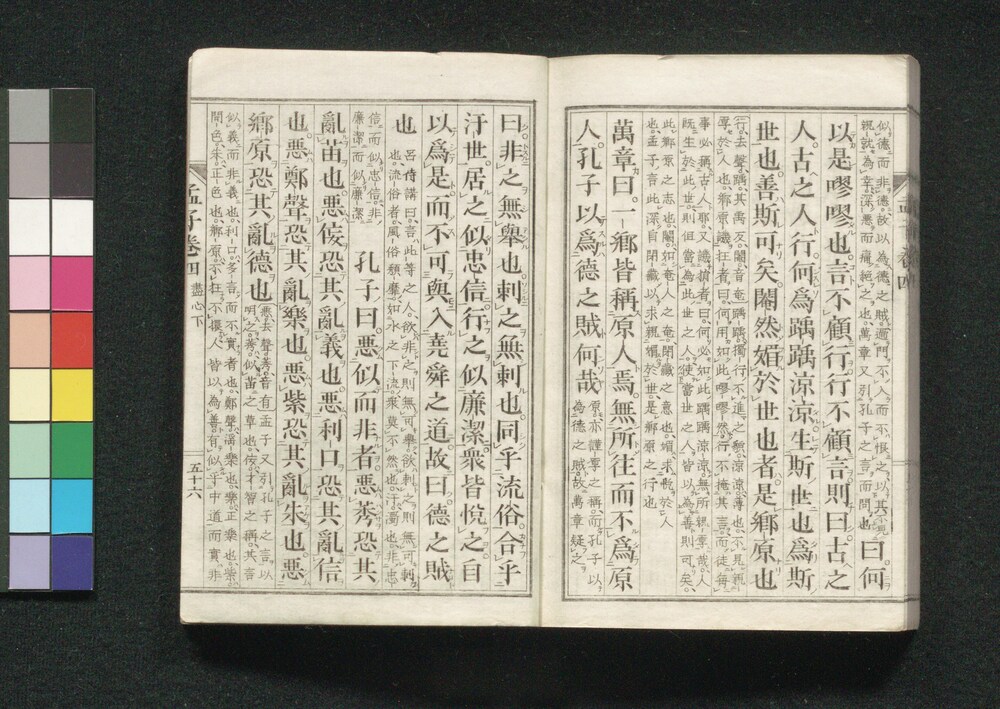 似德而非德故以為德之賊過門不入而不恨之以其不見
親就為幸深惡而痛絕之也萬章又引孔子之言而問也曰何
以是嘐嘐也言不顧行行不顧言則曰古之
人古之人行何爲踽踽涼涼生斯世也爲斯
世也善斯可矣閹然媚於世也者是鄉原也
行去聲踽其禹反閹音奄踽踽獨行不進之貌涼涼薄也不見親
厚於人也鄉原譏狂者曰何用如此嘐嘐然行不掩其言而徒每
事必稱古人耶又譏狷者曰何必如此踽踽涼涼無所親厚哉人
既生於此世則但當為此世之人使當世之人皆以為善則可矣
此鄉原之志也閹如奄人之奄閉藏之意也媚求悅於人
也孟子言此深自閉藏以求親媚於世是鄉原之行也
萬章曰一鄉皆稱原人焉無所往而不爲原
人孔子以爲德之賊何哉
原亦謹厚之稱而孔子以
為德之賊故萬章疑之
曰非之無舉也刺之無刺也同乎流俗合乎
汙世居之似忠信行之似廉潔衆皆悅之自
以爲是而不可與入堯舜之道故曰德之賊
也
呂侍講曰言此等之人欲非之則無可舉欲刺之則無可刺
也流俗者風俗頹靡如水之下流衆莫不然也汙濁也非忠
信而似忠信非
廉潔而似廉潔
孔子曰惡似而非者惡莠恐其
亂苗也惡佞恐其亂義也惡利口恐其亂信
也惡鄭聲恐其亂樂也惡紫恐其亂朱也惡
鄉原恐其亂德也
惡去聲莠音有孟子又引孔子之言以
明之莠似苗之草也佞才智之稱其言
似義而非義也利口多言而不實者也鄭聲淫樂也樂正樂也紫
間色朱正色也鄉原不狂不獧人皆以為善有似乎中道而實非
孟子卷四
盡心下
五十六